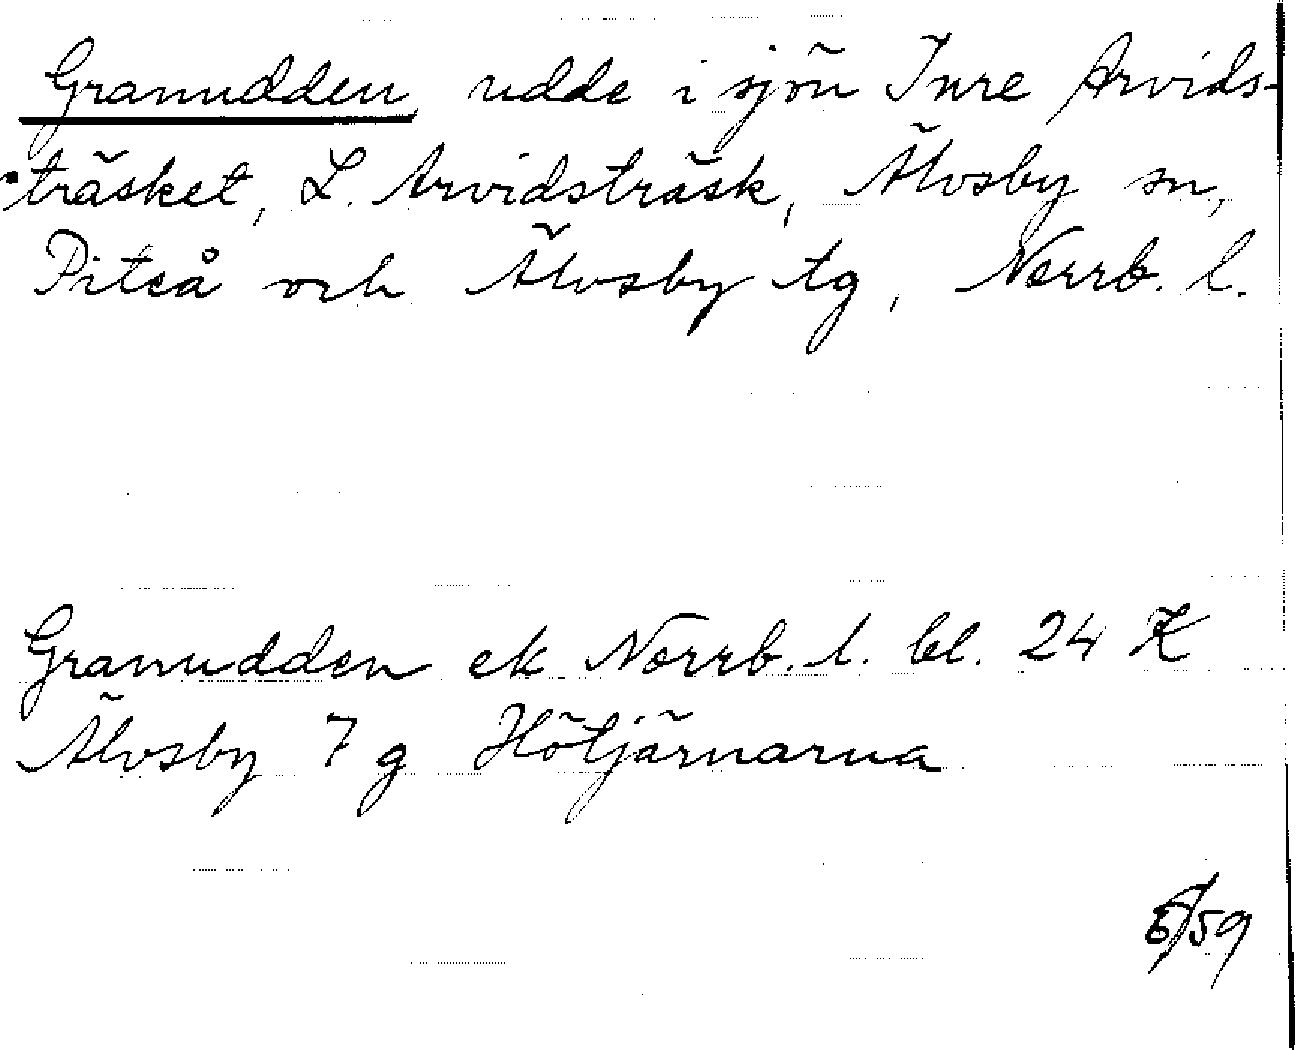 Granudden, udde i sjön Inre Arvids-
träsket, L. Arvidsträsk, Älvsby sn,
Piteå och Älvsby tg, Norrb. l.
Granudden ek Norrb. l. bl. 24 K
Älvsby 7 g Hötjärnarna
/59